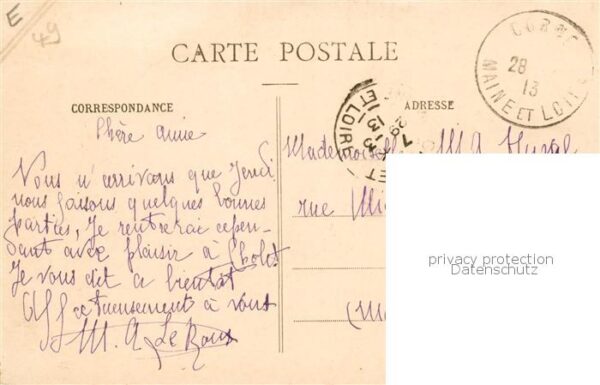 E
49
CARTE POSTALE
CORNÉ
28
13
MAINE ET LOIRE
CORRESPONDANCE
ADRESSE
ET LOIRE
Chère amie
Vous n'arrivons que Jeudi
nous faisons quelques bonnes
parties, Je rentrerai cepen-
dant avec plaisir à Cholet
Je vous dit a bientôt
Affectueusement à vous
M. A. Le Roux
Mademoiselle M A
rue
(M
privacy protection
Datenschutz